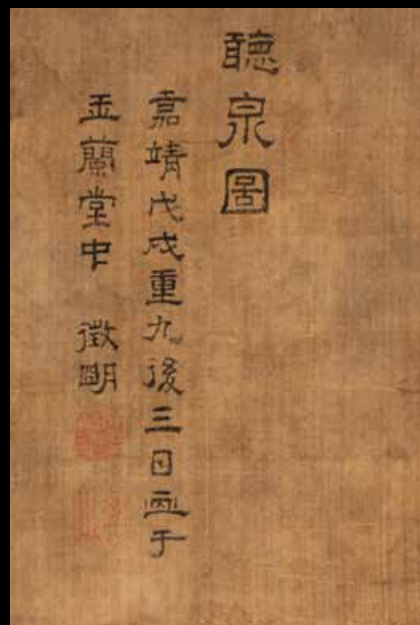 聽泉圖
嘉靖戊戌重九後三日畫于
玉蘭堂中 徵明